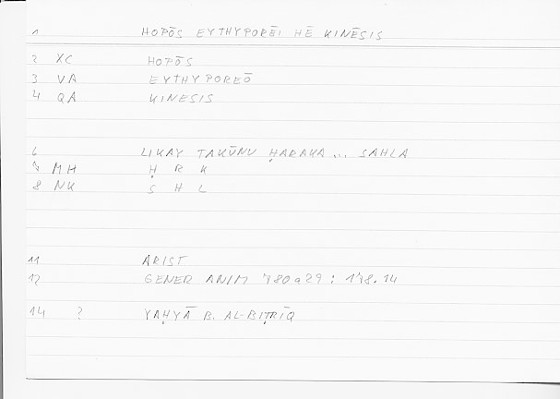 1 HOPŌS EYTHYPORĒI HĒ KINĒSIS
2 XC HOPŌS
3 VA EYTHYPOREŌ
4 QA KINESIS
6 LIKAY TAKŪNU ḤARAKA... SAHLA
7 MH Ḥ R K
8 NK S H L
11 ARIST
12 GENER ANIM 780a29; 178.14
14 ? YAḤYĀ B. AL-BIṬRĪQ